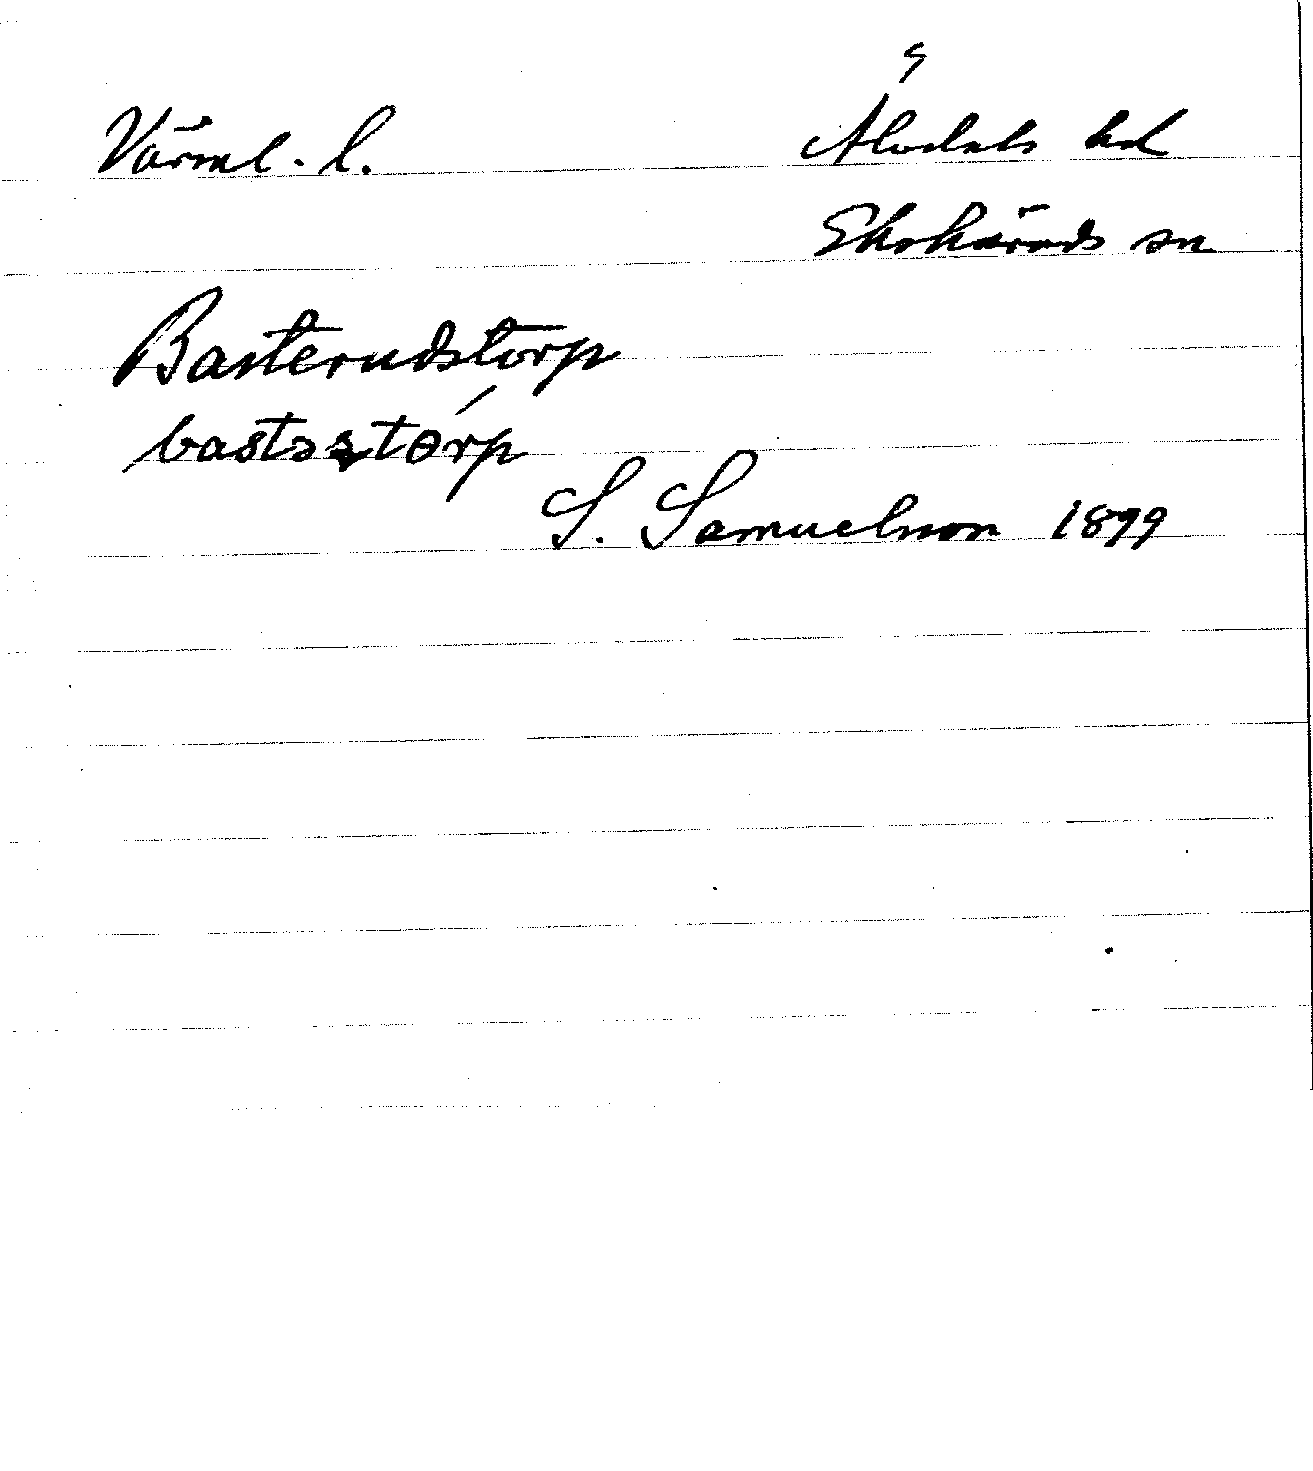 Värml. l. Älvdals hd
Ekshärads sn
Basterudstorp
bastəstórp
S. Samuelsson 1899